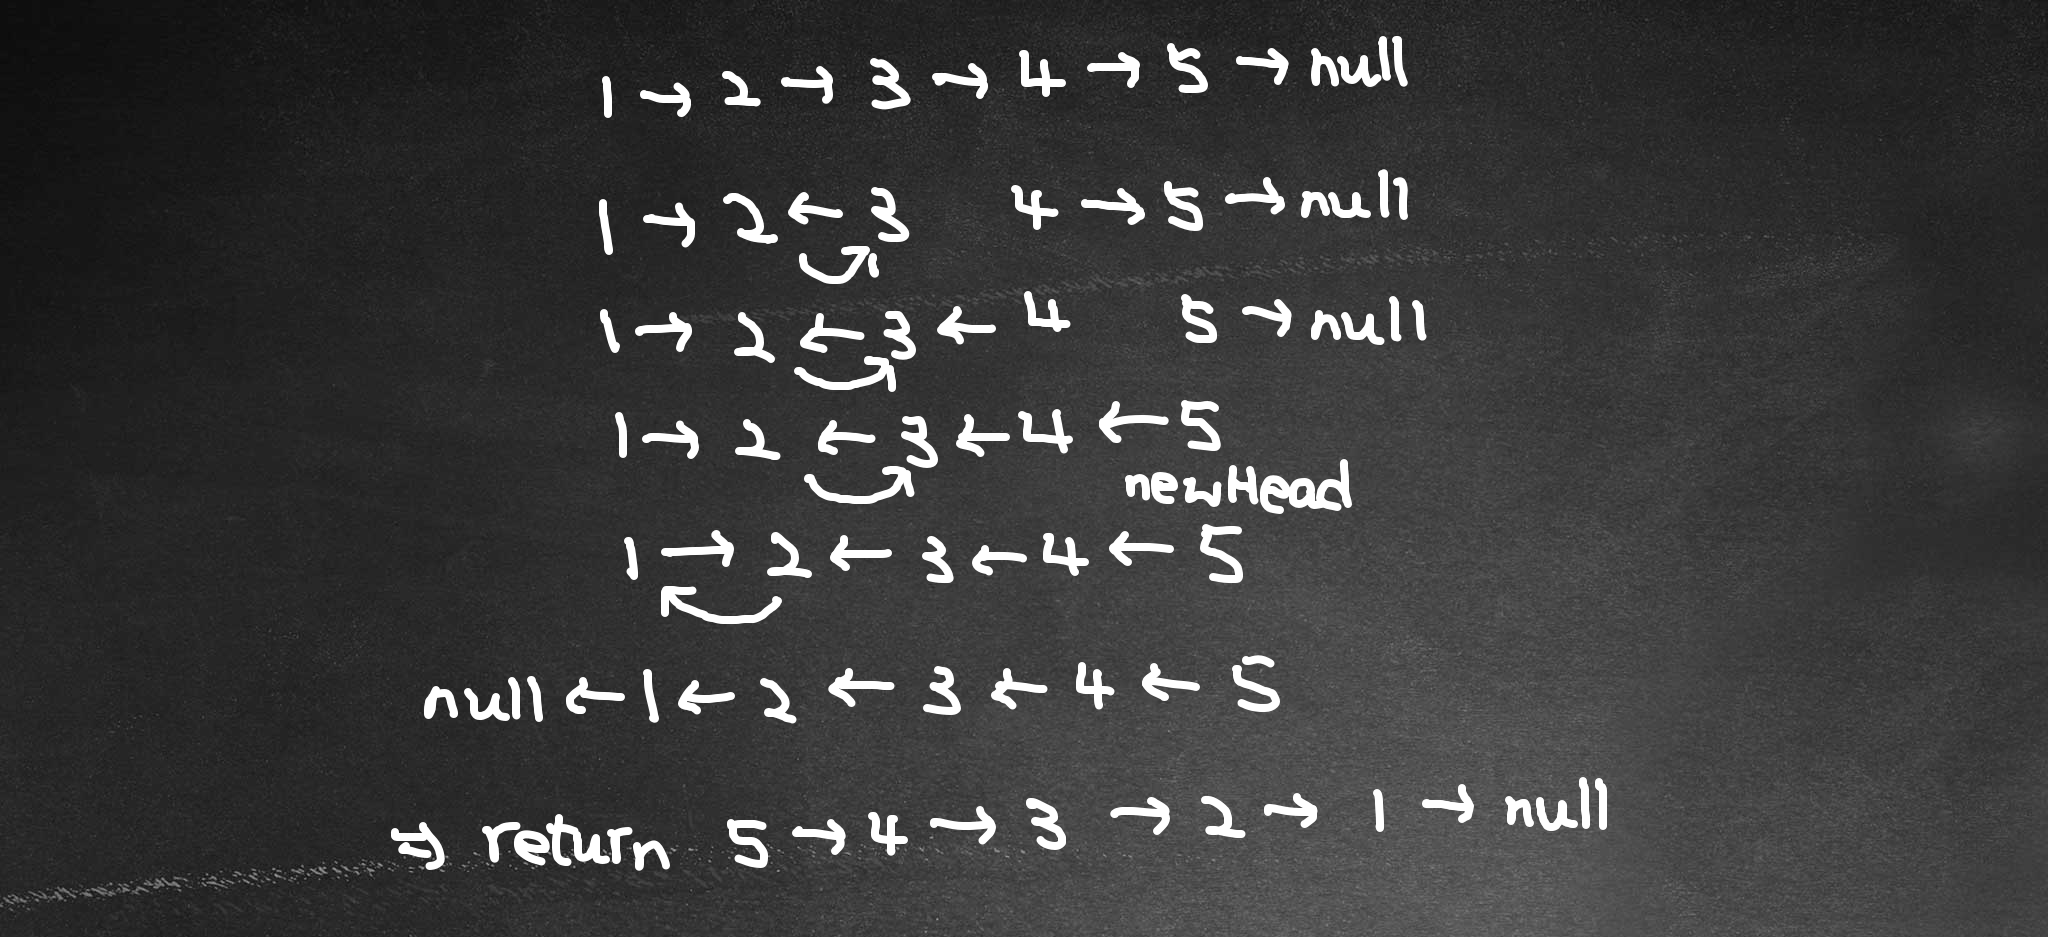 1 → 2 → 3 → 4 → 5 → null
1 → 2 ← 3 4 → 5 → null
1 → 2 ← 3 ← 4 5 → null
1 → 2 ← 3 ← 4 ← 5
newHead
1 → 2 ← 3 ← 4 ← 5
null ← 1 ← 2 ← 3 ← 4 ← 5
⇒ return 5 → 4 → 3 → 2 → 1 → null